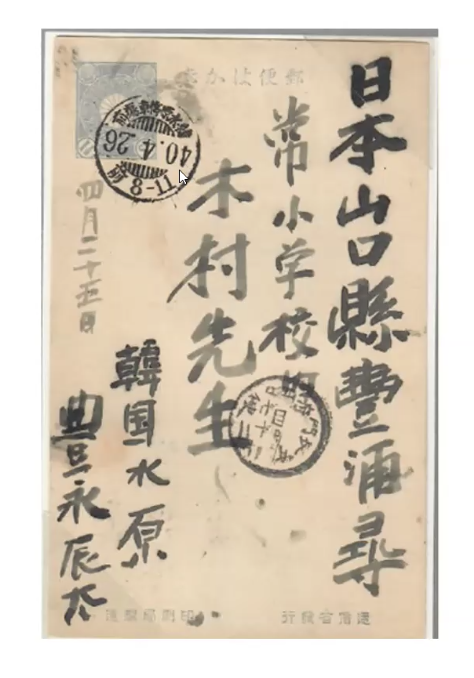 郵便はかき
日本山口縣豐浦尋
常小学校
木村先生
韓国水原
豊永辰
四月二十五日
40.4.26
前8-11